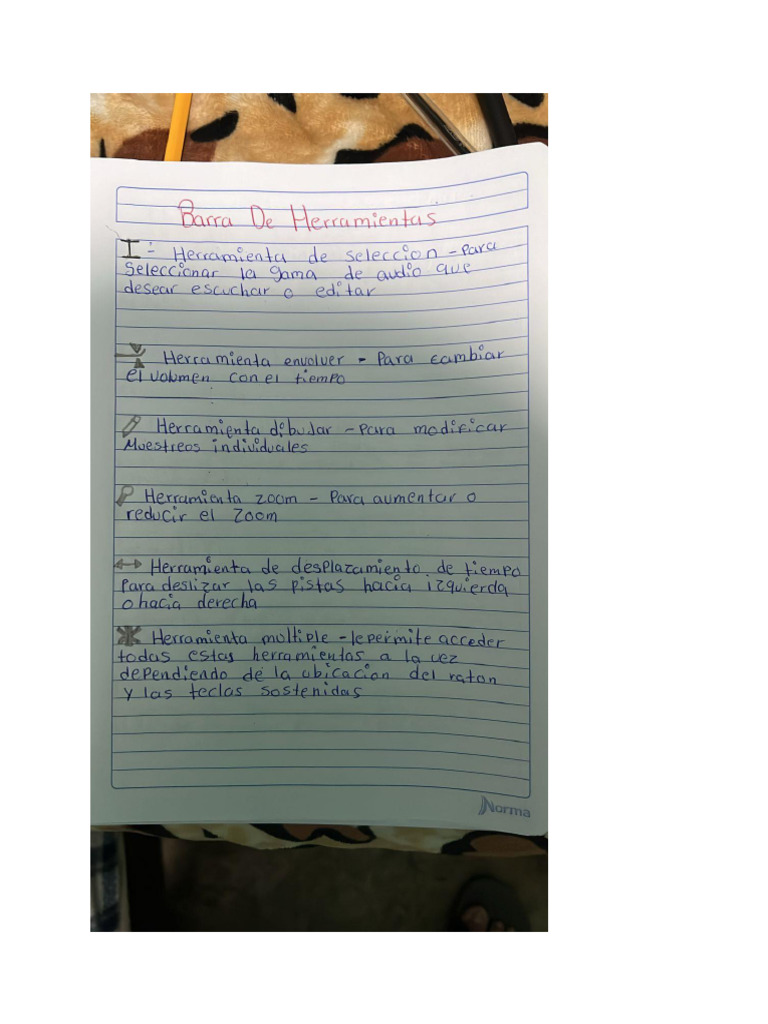 Barra De Herramientas
I:- Herramienta de seleccion - Para
Seleccionar la gama de audio que
desear escuchar o editar
Herramienta envolver - Para cambiar
el volumen con el tiempo
Herramienta dibujar - Para modificar
Muestreos individuales
Herramienta zoom - Para aumentar o
reducir el Zoom
Herramienta de desplazamiento de tiempo
Para deslizar las pistas hacia izquierda
o hacia derecha
Herramienta multiple - le permite acceder
todas estas herramientas a la vez
dependiendo de la ubicacion del raton
y las teclas sostenidas
Norma